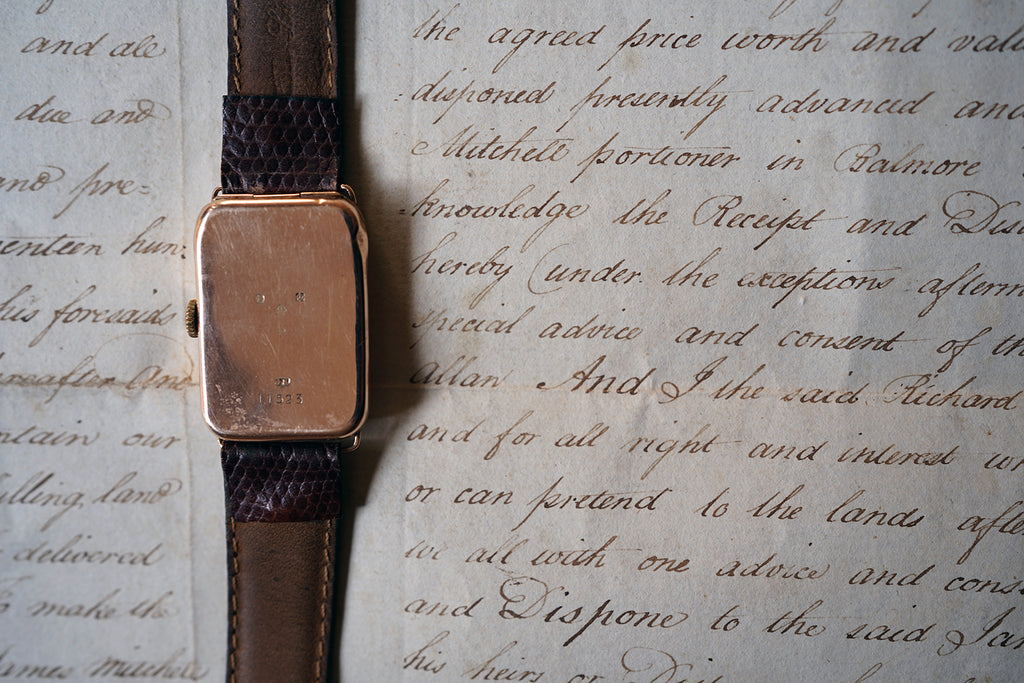 and ale
due and
and pre=
venteen hun:
his foresaids
hereafter And
ntain our
illing land
delivered
make the
James mitchell
11593
the agreed price worth and valu
disponed presently advanced and
Mitchell portioner in Balmore
=knowledge the Receipt and Dis
hereby (under the exceptions afterm
special advice and consent of th
Allan And I the said Richard
and for all right and interest
or can pretend to the lands afte
we all with one advice and cons
and Dispone to the said Jam
his heirs or Dis